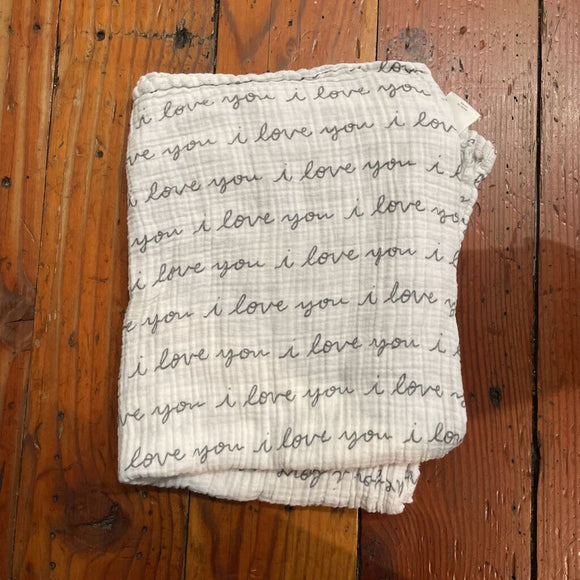 i love you i love you
ve you i love you i lov
i love you i love you i
you i love you i love you
i love you i love you i
ve you i love you i love
i love you i love you i l
love you i love you i love
love you i love you i lo